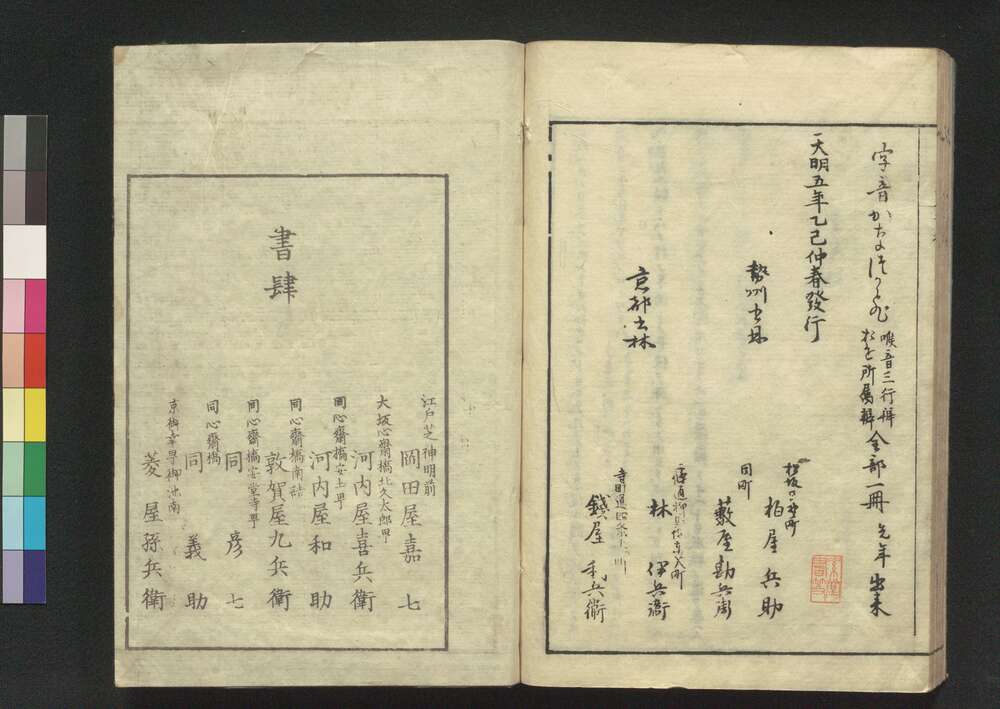 字音かなつかひ 喉音三行辨 おを所属辨 全部一冊 先年出来
天明五年乙巳仲春發行
勢州書林
松坂日野町 柏屋兵助
同町 藪屋勘兵衛
京都書林
林 伊兵衛
寺町通
錢屋利兵衛
書肆
江戸芝神明前
岡田屋嘉七
大坂心齋橋北久太郎町
河内屋喜兵衛
同心齋橋安土町
河内屋和助
同心齋橋南詰
敦賀屋九兵衛
同心齋橋安堂寺町
同 彦七
同心齋橋
同 義助
京御幸町御池南
菱屋孫兵衛